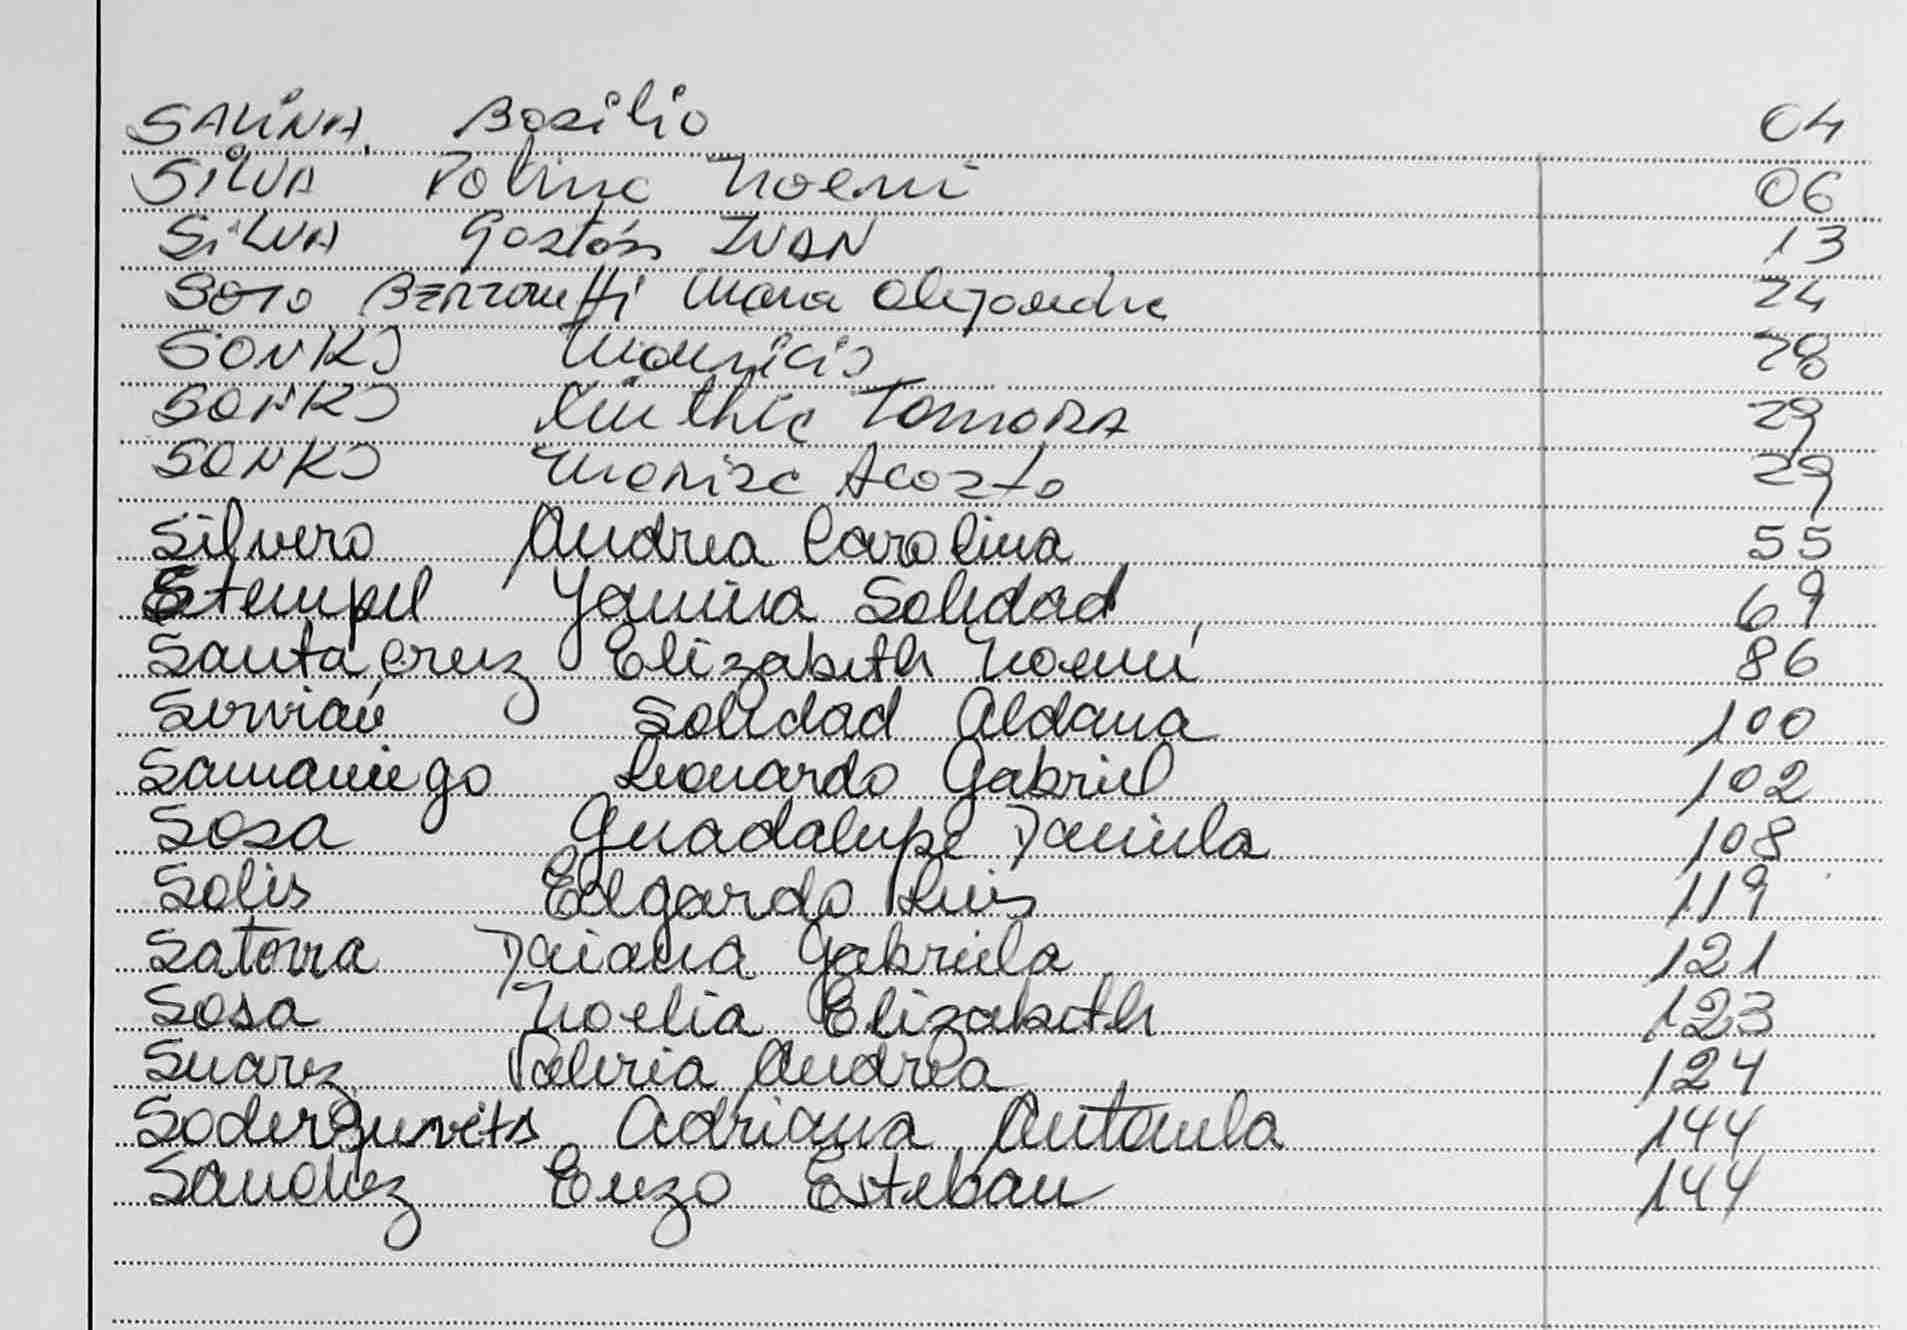 SALINA Basilio 04
SILVA Polina Noemi 06
SILVA Gastón IVAN 13
SOTO Maria Alejandra 24
SONKO Mauricio 28
SONKO Tamara 29
SONKO Acosta 29
Silvero Andrea Carolina 55
Stempel Yanina Soledad 69
Santa cruz Elizabeth Noemí 86
Servián Soledad Aldana 100
Samaniego Leonardo Gabriel 102
Sosa Guadalupe Daniela 108
Solis Edgardo Luis 119
Satorra Daiana Gabriela 121
Sosa Noelia Elizabeth 123
Suarez Valeria Andrea 124
Adriana Antonela 144
Sanchez Enzo Esteban 144